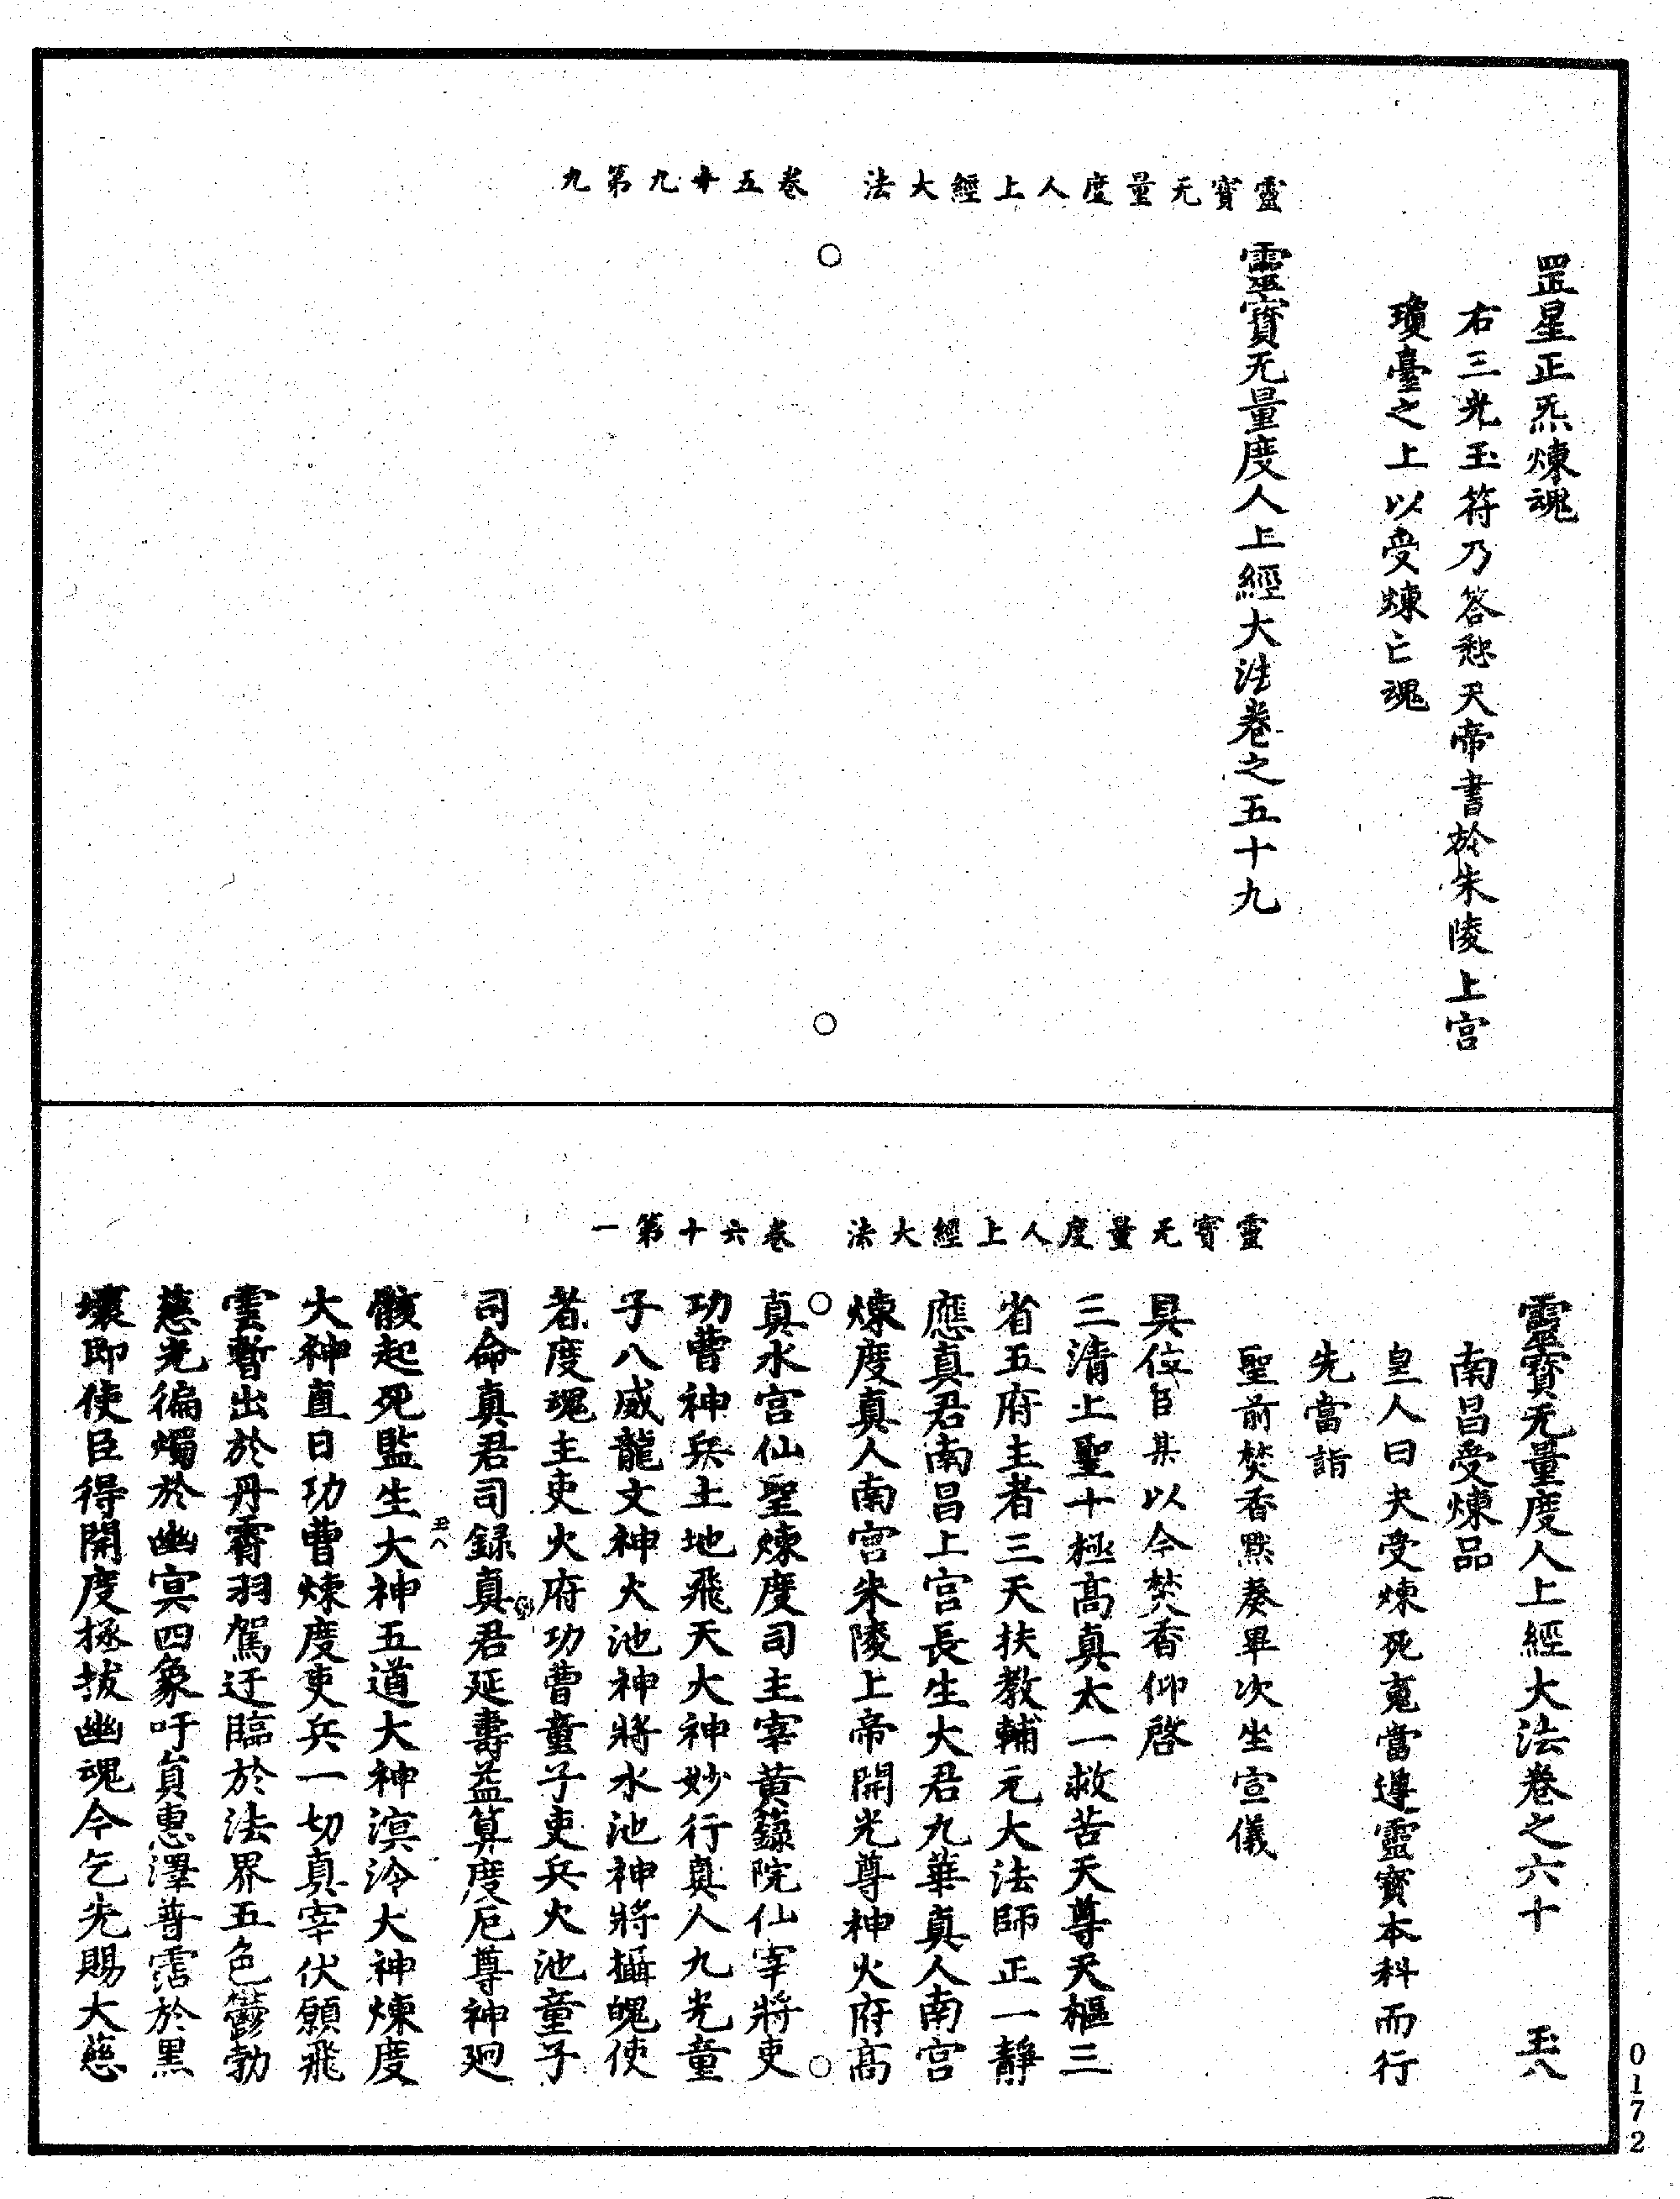 靈寳无量度人上經大法　卷五十九第九
罡星正炁煉魂
右三光玉符乃答愆天帝書於朱陵上宫
瓊臺之上以受煉亡魂
靈寳无量度人上經大法卷之五十九
靈寳无量度人上經大法　卷六十第一
靈寳无量度人上經大法卷之六十　𤣥八
南昌受煉品
皇人曰夫受煉死䰟當遵靈寳本科而行
先當詣
聖前焚香黙奏畢次坐宣儀
具位臣某以今焚香仰啓
三清上聖十極髙真太一救苦天尊天樞三
省五府主者三天扶教輔元大法師正一靜
應真君南昌上宫長生大君九華真人南宫
煉度真人南宫朱陵上帝開光尊神火府髙
真水宫仙聖煉度司主宰黄籙院仙宰將吏
功曹神兵土地飛天大神妙行真人九光童
子八威龍文神火池神將水池神將攝魄使
者度魂主吏火府功曹童子吏兵火池童子
司命真君司録真君延夀益算度厄尊神廻
骸起死監生大神五道大神溟泠大神煉度
大神直日功曹煉度吏兵一切真宰伏願飛
雲暫出於丹霄羽駕迂臨於法界五色鬱勃
慈光徧燭於幽冥四象吁員惠澤普霑於黒
壤即使臣得開度拯拔幽魂今乞先賜大慈
0172